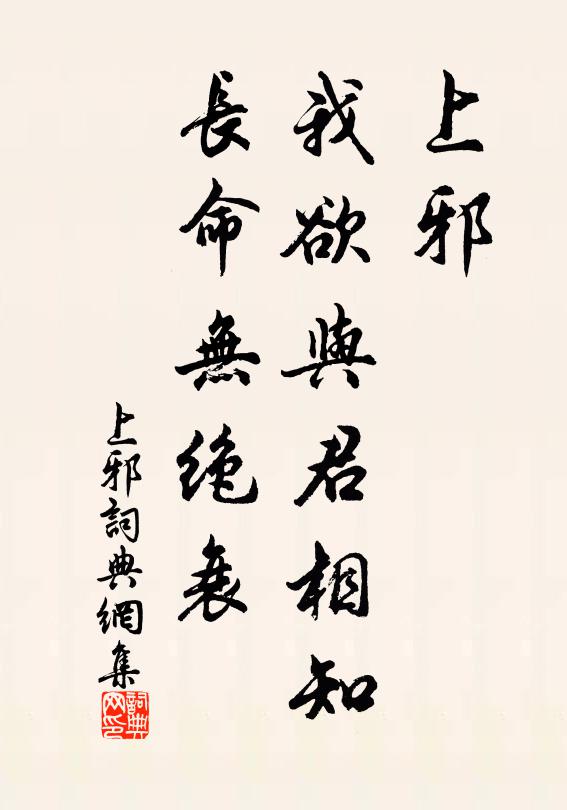 上邪
我欲與君相知
長命無絶衰
上邪詞典網集
詞典网印